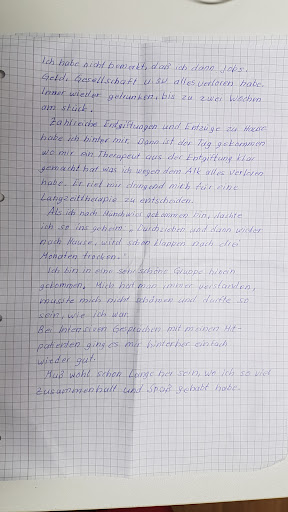 Ich habe nicht bemerkt, daß ich dann Jobs,
Geld, Gesellschaft u.s.w. alles verloren habe.
Immer wieder getrunken, bis zu zwei Wochen
am Stück.
Zahlreiche Entgiftungen und Entzüge zu Hause
habe ich hinter mir. Dann ist der Tag gekommen
wo mir ein Therapeut aus der Entgiftung klar
gemacht hat was ich wegen dem Alk alles verloren
habe. Er riet mir dringend mich für eine
Langzeittherapie zu entscheiden.
Als ich nach gekommen bin, dachte
ich so ins geheim „ und dann wieder
nach Hause, wird schon klappen nach drei
Monaten trocken."
Ich bin in eine sehr schöne Gruppe
gekommen. Mich hat man immer verstanden,
musste mich nicht schämen und durfte so
sein, wie ich war.
Bei Intensiven Gesprächen mit meinen Mit-
patienten ging es mir hinterher einfach
wieder gut.
Muß wohl schon Lange her sein, wo ich so viel
Zusammenhalt und Spaß gehabt habe.